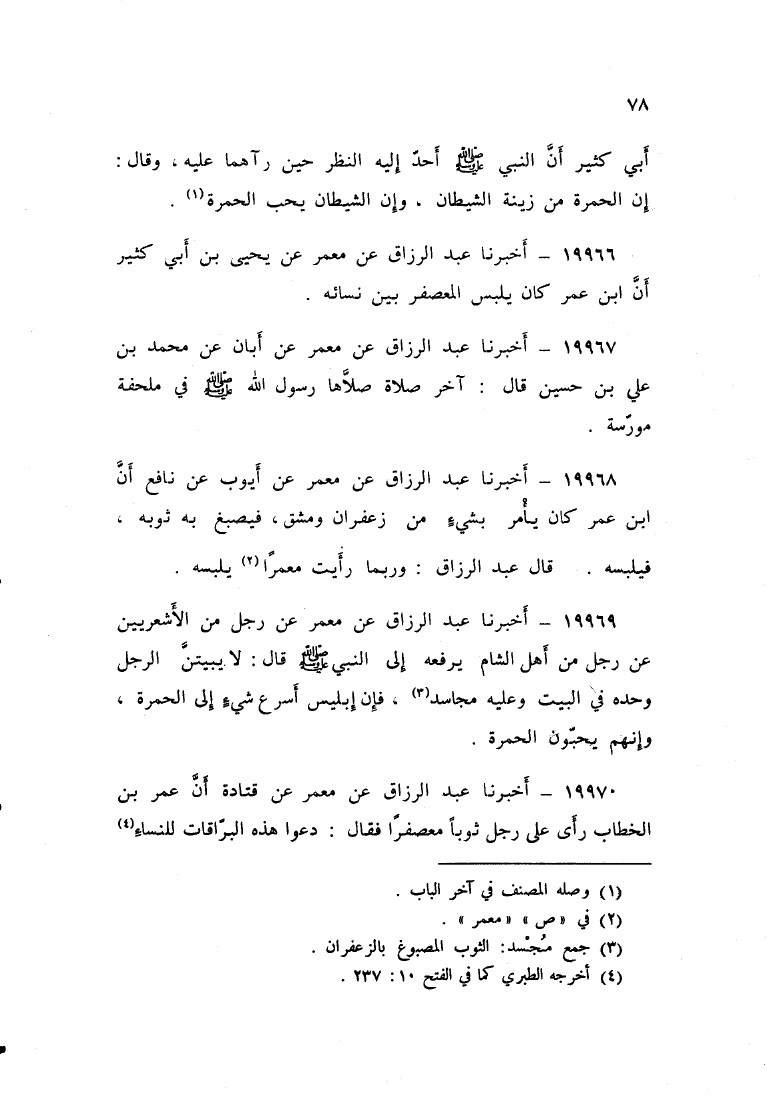 ٧٨
أبي كثير أنَّ النبي ﷺ أحدّ إليه النظر حين رآهما عليه ، وقال :
إن الحمرة من زينة الشيطان ، وإن الشيطان يحب الحمرة(١) .
١٩٩٦٦ – أخبرنا عبد الرزاق عن معمر عن يحيى بن أبي كثير
أنَّ ابن عمر كان يلبس المعصفر بين نسائه .
١٩٩٦٧ – أخبرنا عبد الرزاق عن معمر عن أبان عن محمد بن
علي بن حسين قال : آخر صلاة صلاَّها رسول الله ﷺ في ملحفة
مورّسة .
١٩٩٦٨ – أخبرنا عبد الرزاق عن معمر عن أيوب عن نافع أنَّ
ابن عمر كان يأمر بشيءٍ من زعفران ومشق ، فيصبغ به ثوبه ،
فيلبسه . قال عبد الرزاق : وربما رأيت معمرًا(٢) يلبسه .
١٩٩٦٩ – أخبرنا عبد الرزاق عن معمر عن رجل من الأشعريين
عن رجل من أهل الشام يرفعه إلى النبي ﷺ قال : لا يبيتنَّ الرجل
وحده في البيت وعليه مجاسد(٣) ، فإن إبليس أسرع شيءٍ إلى الحمرة ،
وإنهم يحبّون الحمرة .
١٩٩٧٠ – أخبرنا عبد الرزاق عن معمر عن قتادة أنَّ عمر بن
الخطاب رأى على رجل ثوباً معصفرًا فقال : دعوا هذه البرّاقات للنساء(٤)
(١) وصله المصنف في آخر الباب .
(٢) في « ص » « معمر » .
(٣) جمع مُجْسد : الثوب المصبوغ بالزعفران .
(٤) أخرجه الطبري كما في الفتح ١٠ : ٢٣٧ .